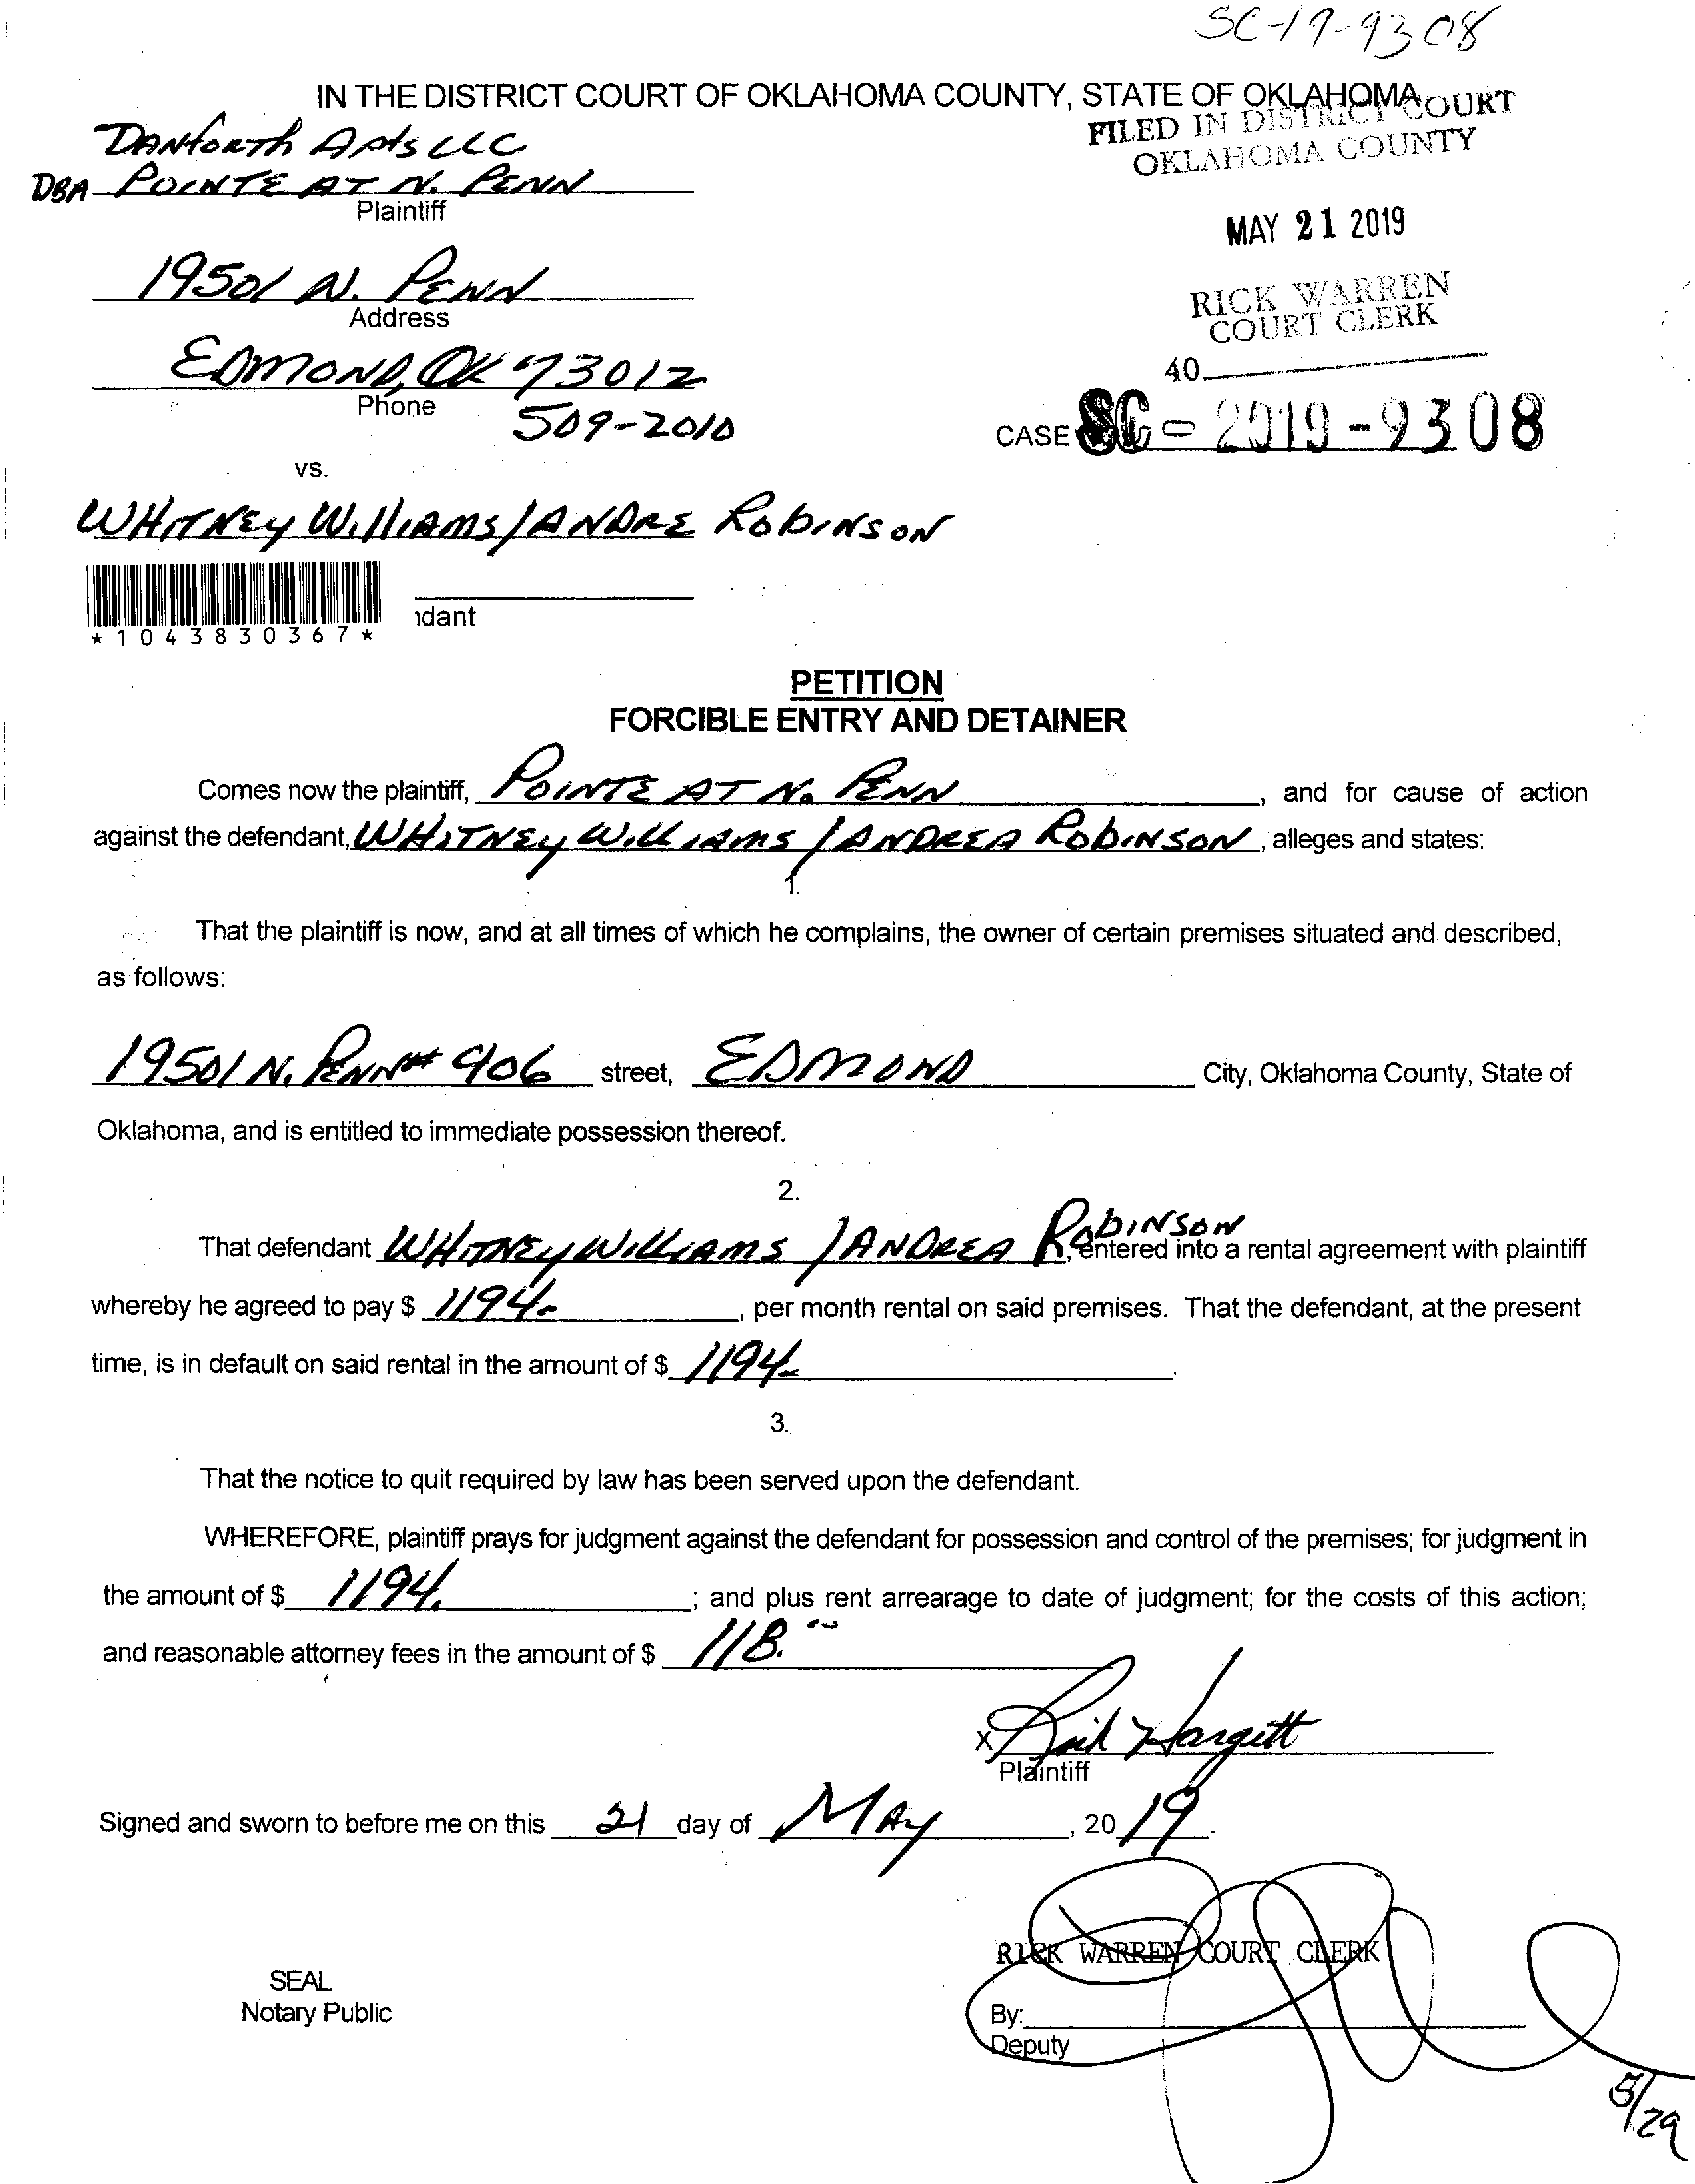 SC-19-9308
IN THE DISTRICT COURT OF OKLAHOMA COUNTY, STATE OF OKLAHOMA
FILED IN DISTRICT COURT
OKLAHOMA COUNTY
DANFORTH APTS LLC
DBA POINTE AT N. PENN
Plaintiff
MAY 21 2019
19501 N. PENN
Address
RICK WARREN
COURT CLERK
EDMOND, OK 73012
Phone
509-2010
40
CASE SC-2019-9308
vs.
WHITNEY WILLIAMS / ANDRE ROBINSON
*1043830367*
dant
PETITION
FORCIBLE ENTRY AND DETAINER
Comes now the plaintiff, POINTE AT N. PENN, and for cause of action
against the defendant, WHITNEY WILLIAMS / ANDREA ROBINSON, alleges and states:
1.
That the plaintiff is now, and at all times of which he complains, the owner of certain premises situated and described,
as follows:
19501 N. PENN # 906 street, EDMOND City, Oklahoma County, State of
Oklahoma, and is entitled to immediate possession thereof.
2.
That defendant WHITNEY WILLIAMS / ANDREA ROBINSON, entered into a rental agreement with plaintiff
whereby he agreed to pay $ 1194-, per month rental on said premises. That the defendant, at the present
time, is in default on said rental in the amount of $ 1194-.
3.
That the notice to quit required by law has been served upon the defendant.
WHEREFORE, plaintiff prays for judgment against the defendant for possession and control of the premises; for judgment in
the amount of $ 1194.; and plus rent arrearage to date of judgment; for the costs of this action;
and reasonable attorney fees in the amount of $ 118.
X Hargett
Plaintiff
Signed and sworn to before me on this 21 day of MAY, 2019.
RICK WARREN COURT CLERK
SEAL
Notary Public
By:
Deputy
5/29